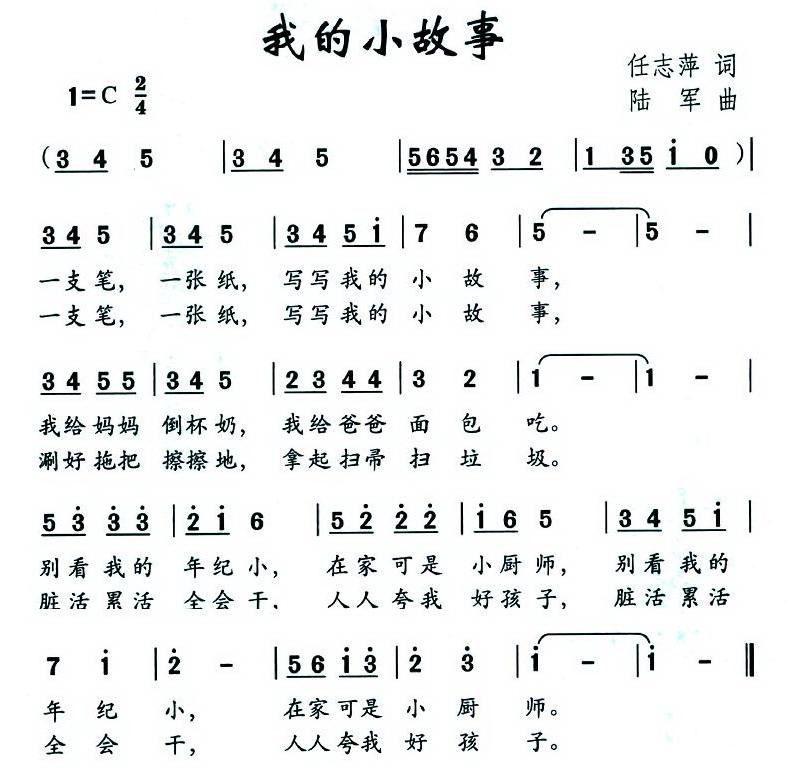 我的小故事
任志萍 词
1=C 2/4
陆 军 曲
(3 4 5 | 3 4 5 | 5654 3 2 | 1 35 i 0 )|
3 4 5 | 3 4 5 | 3 4 5 i | 7 6 | 5 - | 5 - |
一支笔, 一张纸, 写写我的 小 故 事,
一支笔, 一张纸, 写写我的 小 故 事,
3 4 5 5 | 3 4 5 | 2 3 4 4 | 3 2 | 1 - | 1 - |
我给妈妈 倒杯奶, 我给爸爸 面 包 吃。
涮好拖把 擦擦地, 拿起扫帚 扫 垃 圾。
5 3̇ 3̇ 3̇ | 2̇ i 6 | 5 2̇ 2̇ 2̇ | i 6 5 | 3 4 5 i |
别看我的 年纪小, 在家可是 小厨师, 别看我的
脏活累活 全会干, 人人夸我 好孩子, 脏活累活
7 i | 2̇ - | 5 6 i 3̇ | 2̇ 3̇ | i - | i - ‖
年 纪 小, 在家可是 小 厨 师。
全 会 干, 人人夸我 好 孩 子。